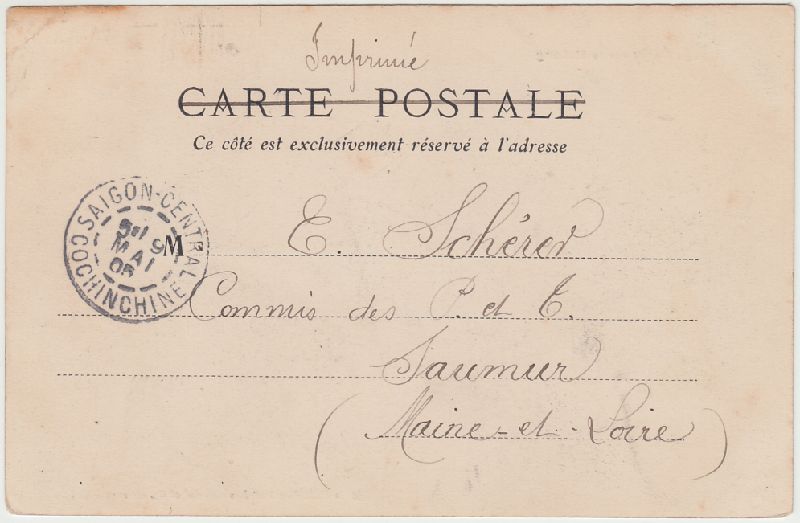 Imprimé
CARTE POSTALE
Ce côté est exclusivement réservé à l'adresse
SAIGON-CENTRAL
9
MAI
05
COCHINCHINE
M
E. Schérer
Commis des P. et T.
Saumur
(Maine-et-Loire)